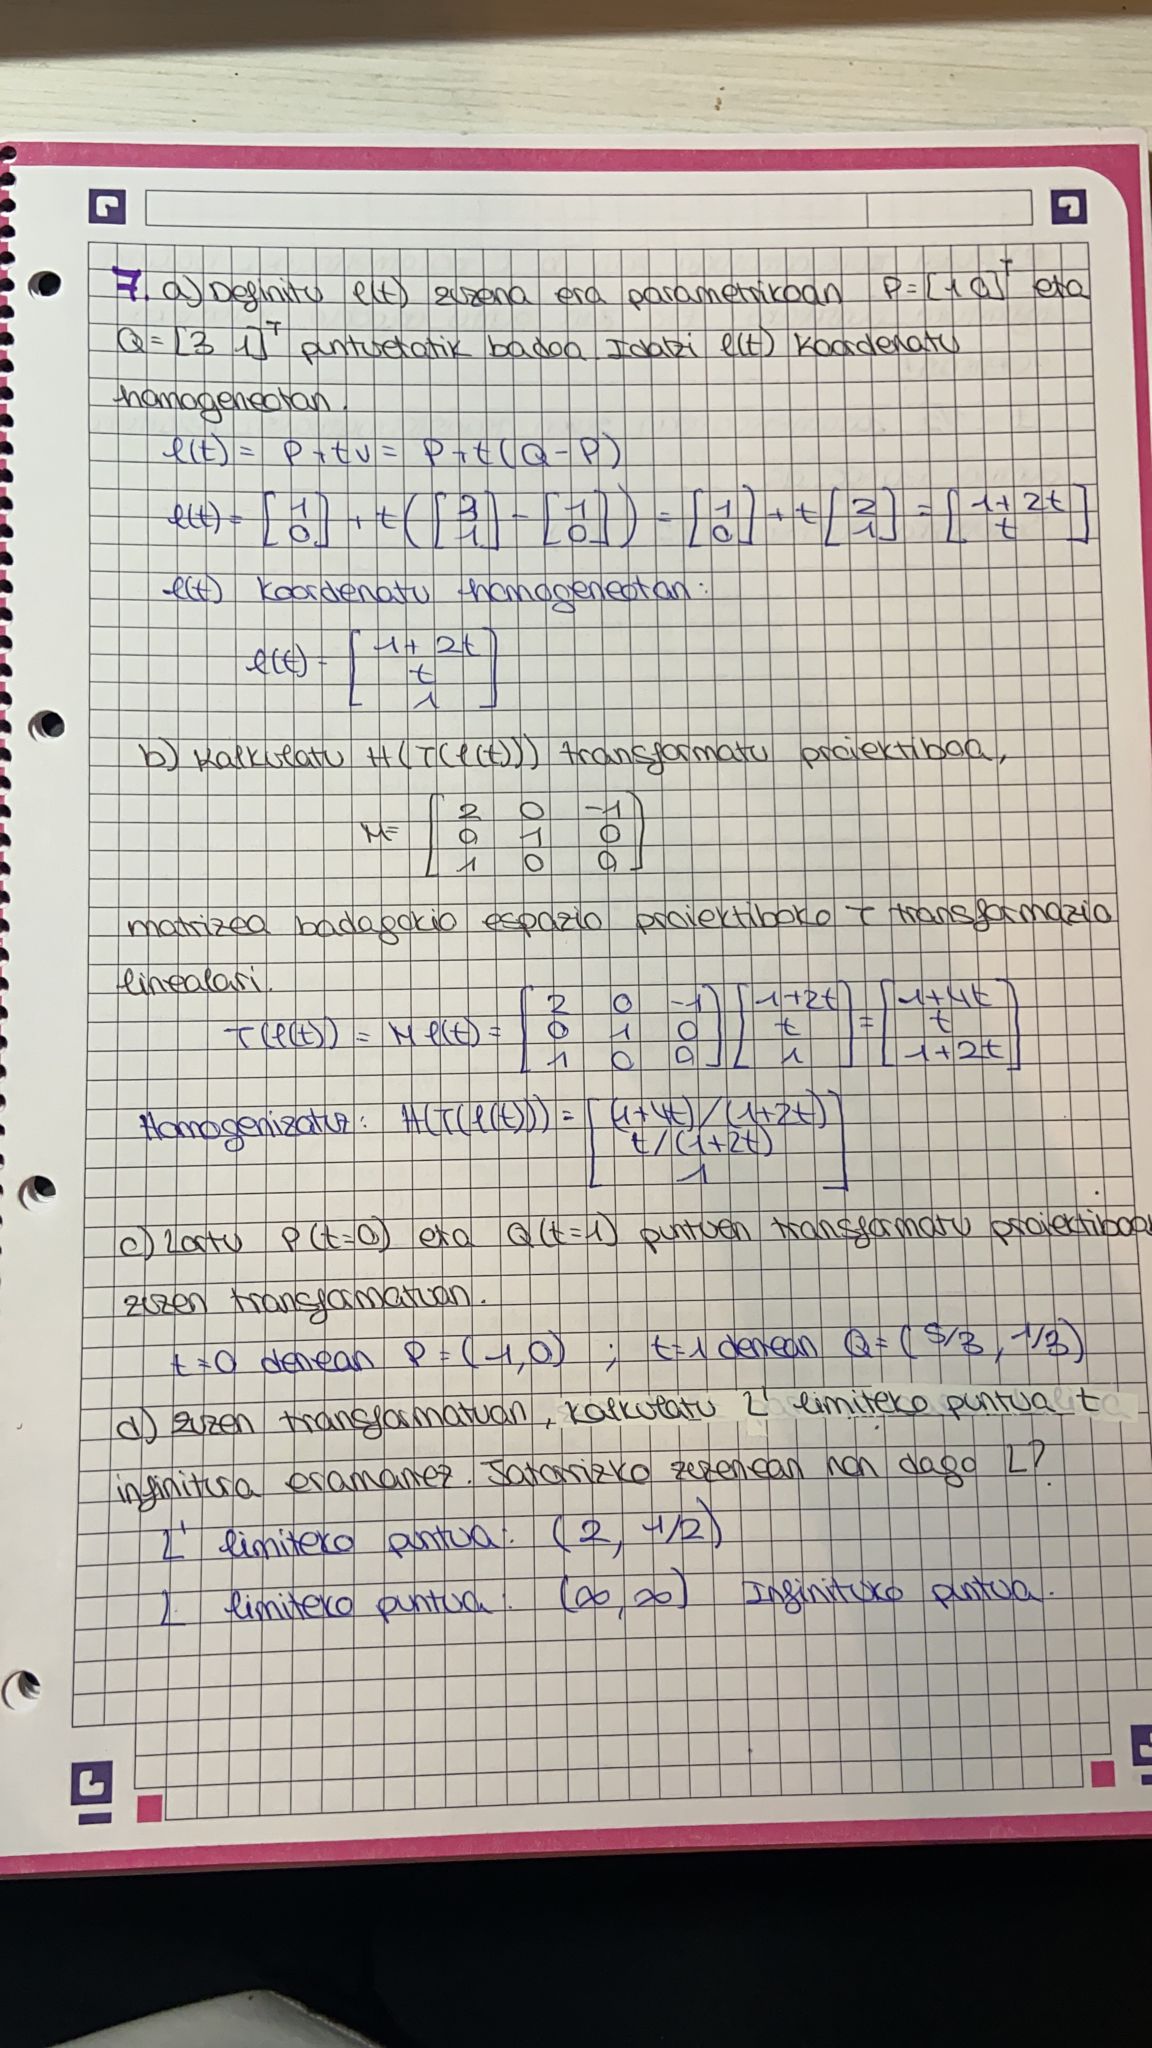 7. a) Definitu l(t) zuzena era parametrikoan P=[1 0]^T eta
Q=[3 1]^T puntuetatik badoa Idatzi l(t) koordenatu
homogeneotan.
l(t) = P+tv = P+t(Q-P)
l(t) = [1 0] + t([3 1] - [1 0]) = [1 0] + t[2 1] = [1+2t t]
l(t) koordenatu homogeneotan:
l(t) = [1+2t t 1]
b) Kalkulatu H(T(l(t))) transformatu proiektiboa,
M= [2 0 -1
0 1 0
1 0 0]
matrizea badagokio espazio proiektiboko T transformazio
linealari.
T(l(t)) = M l(t) = [2 0 -1; 0 1 0; 1 0 0] [1+2t t 1] = [1+4t t 1+2t]
Homogenizatuz: H(T(l(t))) = [(1+4t)/(1+2t)
t/(1+2t)
1]
c) Lortu P(t=0) eta Q(t=1) puntuen transformatu proiektiboa
zuzen transformatuan.
t=0 denean P=(1,0) ; t=1 denean Q=(5/3, 1/3)
d) zuzen transformatuan, kalkulatu L' limiteko puntua t
infinitura eramanez. Jatorrizko zuzenean non dago L?
L' limiteko puntua: (2, 1/2)
L limiteko puntua: (∞,∞) Infinituko puntua.